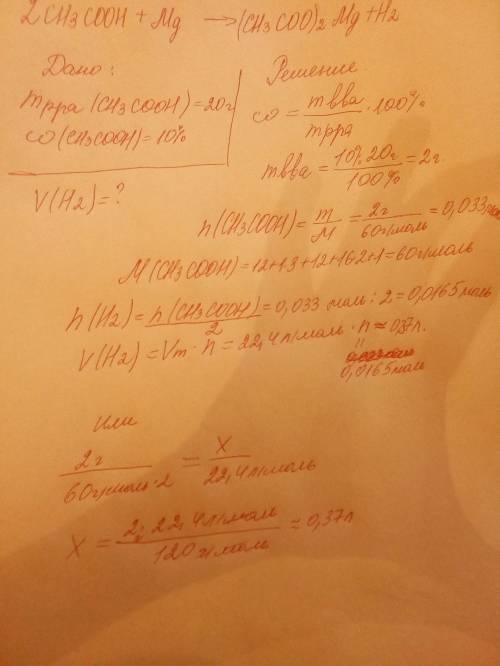 2CH3COOH + Mg → (CH3COO)2 Mg + H2
Дано:
mрра (CH3COOH) = 20г
ω (CH3COOH) = 10%
V(H2) = ?
Решение
ω = mвва / mрра · 100%
mвва = 10% · 20г / 100% = 2г
n(CH3COOH) = m / M = 2г / 60г/моль = 0,033
M(CH3COOH) = 12+1·3+12+16·2+1 = 60г/моль
n(H2) = n(CH3COOH) / 2 = 0,033 моль : 2 = 0,0165 моль
V(H2) = Vm · n = 22,4 л/моль · n ≈ 0,37 л.
0,0165 моль
или
2г / 60г/моль·2 = X / 22,4 л/моль
X = 2г · 22,4 л/моль / 120 г/моль ≈ 0,37 л